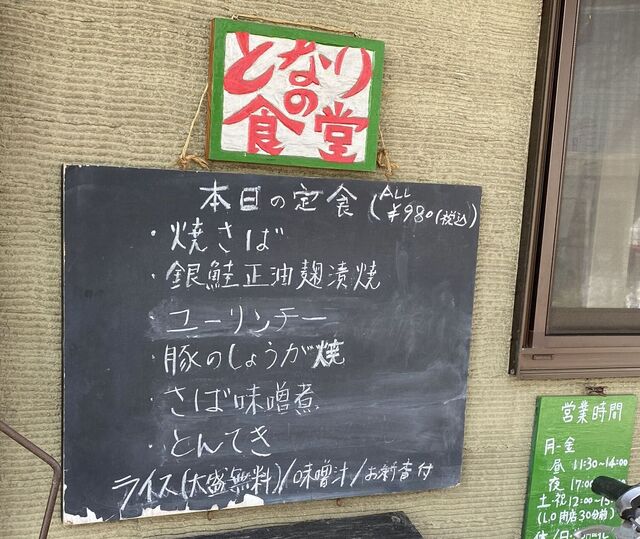 となり
の
食堂
本日の定食(ALL ¥980(税込)
・焼さば
・銀鮭正油麹漬焼
・ユーリンチー
・豚のしょうが焼
・さば味噌煮
・とんてき
ライス(大盛無料)/味噌汁/お新香付
営業時間
月-金
昼 11:30~14:00
夜 17:00
土・祝 12:00~15
(L.O 閉店30分前)
休/日